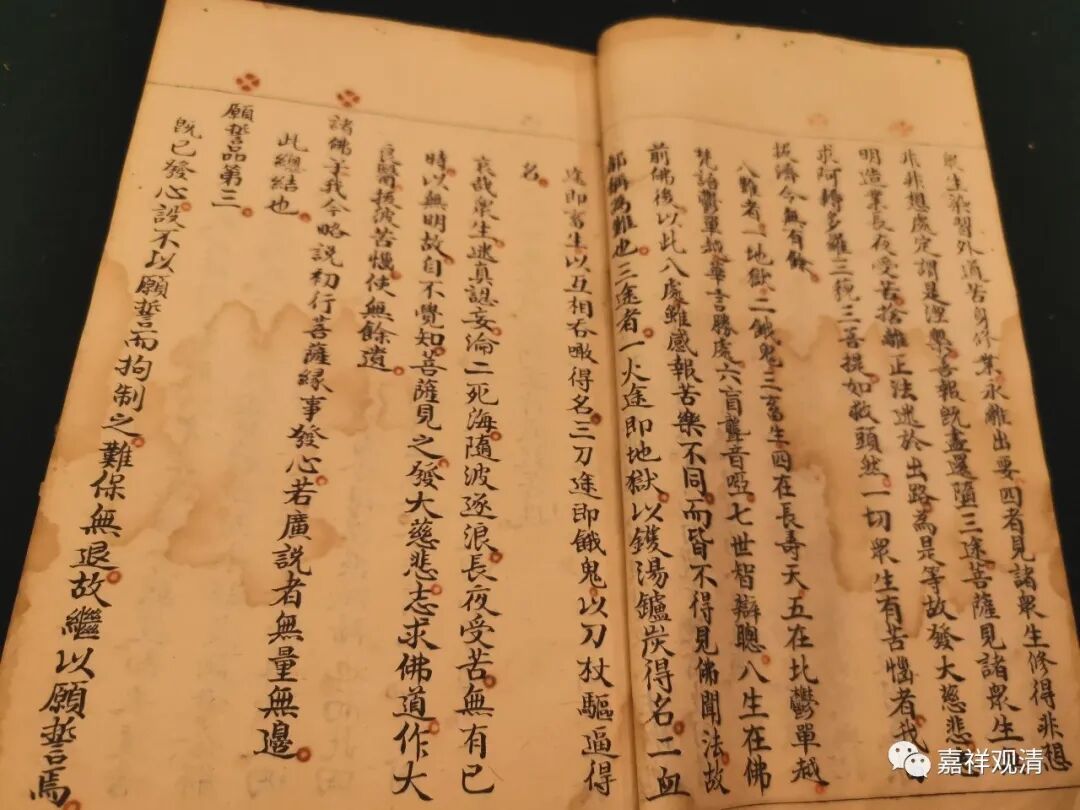 衆生譺習外道苦身修業永離出要四者見諸衆生修得非想
非非想處定謂是涅槃善報既盡還墮三途菩薩見諸衆生
明造業長夜受苦捨離正法迷於出路為是等故發大慈悲志
求阿耨多羅三藐三菩提如救頭然一切衆生有苦惱者我
拔濟令無有餘
八難者一地獄二餓鬼三畜生四在長壽天五在比鬱單越
梵語鬱單越華言勝處六盲聾音啞七世智辯聰八生在佛
前佛後以此八處雖感報苦樂不同而皆不得見佛聞法故
都稱為難也三途者一火途即地獄以鑊湯鑪炭得名二血
途即畜生以互相吞噉得名三刀途即餓鬼以刀杖驅逼得
名
哀哉衆生迷真認妄淪二死海隨波逐浪長夜受苦無有已
時以無明故自不覺知菩薩見之發大慈悲志求佛道作大
良醫拔彼苦惱使無餘遺
諸佛子我今略說初行菩薩緣事發心若廣說者無量無邊
此總結也
願誓品第三
既已發心設不以願誓而拘制之難保無退故繼以願誓焉
嘉祥观清